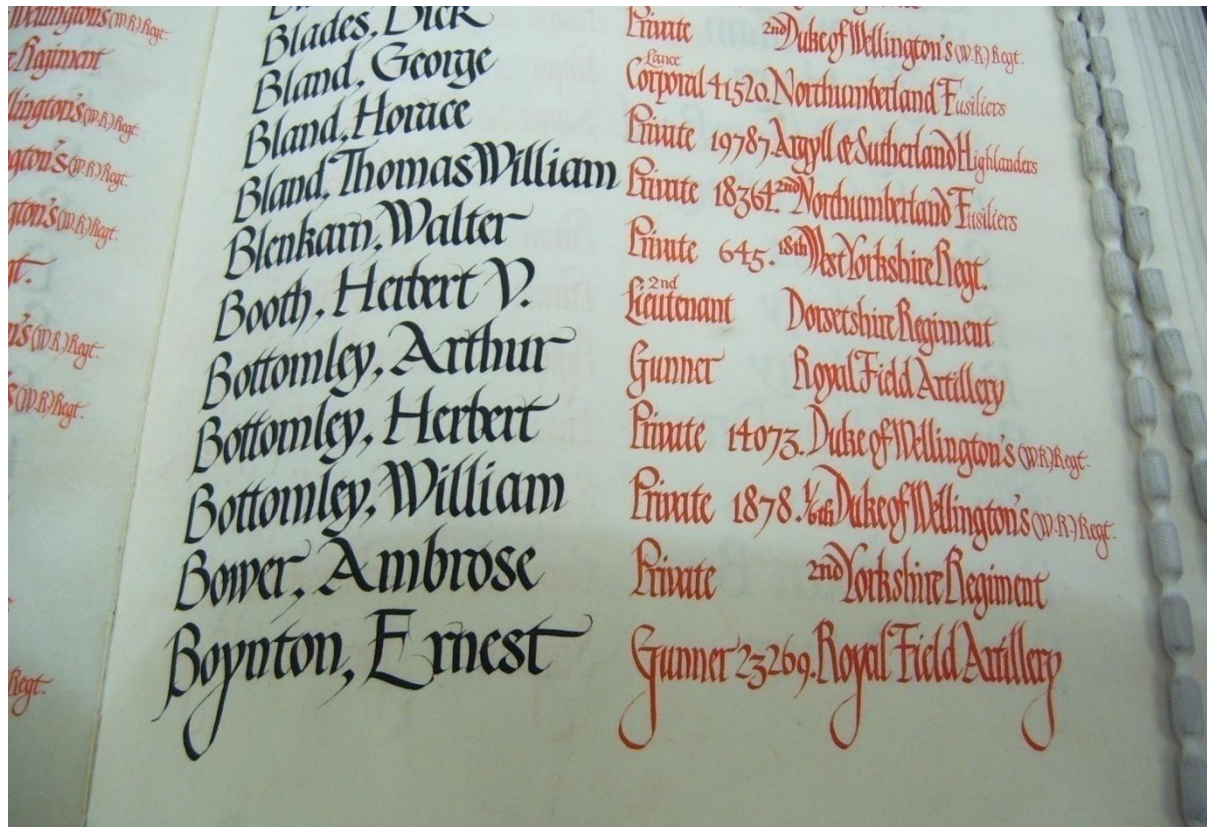 Wellington's (W.R.) Regt.
Regiment
(W.R.) Regt.
(W.R.) Regt.
(W.R.) Regt.
(W.R.) Regt.
(W.R.) Regt.
Regt.
Blades, Dick Private 2nd Duke of Wellington's (W.R.) Regt.
Bland, George Lance Corporal 41520. Northumberland Fusiliers
Bland, Horace Private 19787. Argyll & Sutherland Highlanders
Bland, Thomas William Private 18364. 2nd Northumberland Fusiliers
Blenkarn, Walter Private 645. 18th West Yorkshire Regt.
Booth, Herbert V. 2nd Lieutenant Dorsetshire Regiment
Bottomley, Arthur Gunner Royal Field Artillery
Bottomley, Herbert Private 14073. Duke of Wellington's (W.R.) Regt.
Bottomley, William Private 1878. 1/6th Duke of Wellington's (W.R.) Regt.
Bower, Ambrose Private 2nd Yorkshire Regiment
Boynton, Ernest Gunner 23269. Royal Field Artillery